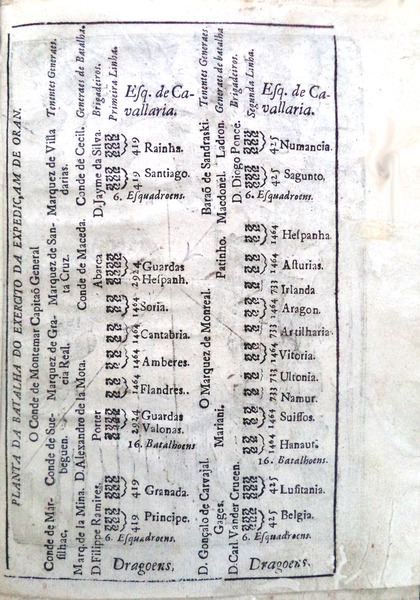 PLANTA DA BATALHA DO EXERCITO DA EXPEDIÇAM DE ORAN.
O Conde de Montemar Capitaõ General
Conde de Mar- Conde de Sue- Marquez de Gra- Marquez de San- Marquez de Villa Tenentes Generaes.
silhac, beguen. cia Real. ta Cruz. darias.
Marq. de la Mina. D. Alexandro de la Mota. Conde de Maceda. Conde de Cecil. Generaes de Batalha.
D. Filippe Ramires. Porter Abarca D. Jayme da Silva. Brigadeiros.
Primeira Linha.
Esq. de Ca-
vallaria.
419 Rainha.
419 Santiago.
6. Esquadroens.
2924 Guardas
Hespanh.
1464 Soria.
1464 Cantabria.
1464 Amberes.
1464 Flandres.
2924 Guardas
Valonas.
16. Batalhoens
419 Granada.
419 Principe.
6. Esquadroens.
Dragoens.
D. Gonçalo de Carvajal. O Marquez de Montreal. Baraõ de Sandraski. Tenentes Generaes.
Gages. Mariani. Patinho. Macdonel. Ladron. Generaes de batalha
D. Carl. Vander Crucen. D. Diogo Ponce. Brigadeiros.
Segunda Linha.
Esq. de Ca-
vallaria.
425 Numancia.
425 Sagunto,
6. Esquadroens.
1464 Hespanha.
1464 Asturias.
733 Irlanda
1464 Aragon.
733 Artilharia
1464 Vitoria.
733 Ultonia.
733 Namur.
1464 Suissos.
1464 Hanaut.
16. Batalhoens.
425 Lusitania.
425 Belgia.
6. Esquadroens.
Dragoens.